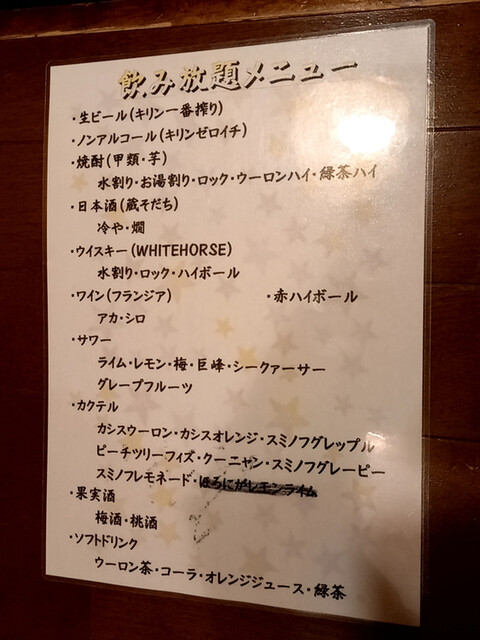 飲み放題メニュー
・生ビール(キリン一番搾り)
・ノンアルコール(キリンゼロイチ)
・焼酎(甲類・芋)
水割り・お湯割り・ロック・ウーロンハイ・緑茶ハイ
・日本酒(蔵そだち)
冷や・燗
・ウイスキー(WHITEHORSE)
水割り・ロック・ハイボール
・ワイン(フランジア) ・赤ハイボール
アカ・シロ
・サワー
ライム・レモン・梅・巨峰・シークァーサー
グレープフルーツ
・カクテル
カシスウーロン・カシスオレンジ・スミノフグレップル
ピーチツリーフィズ・クーニャン・スミノフグレーピー
スミノフレモネード・ほろにがレモンライム
・果実酒
梅酒・桃酒
・ソフトドリンク
ウーロン茶・コーラ・オレンジジュース・緑茶